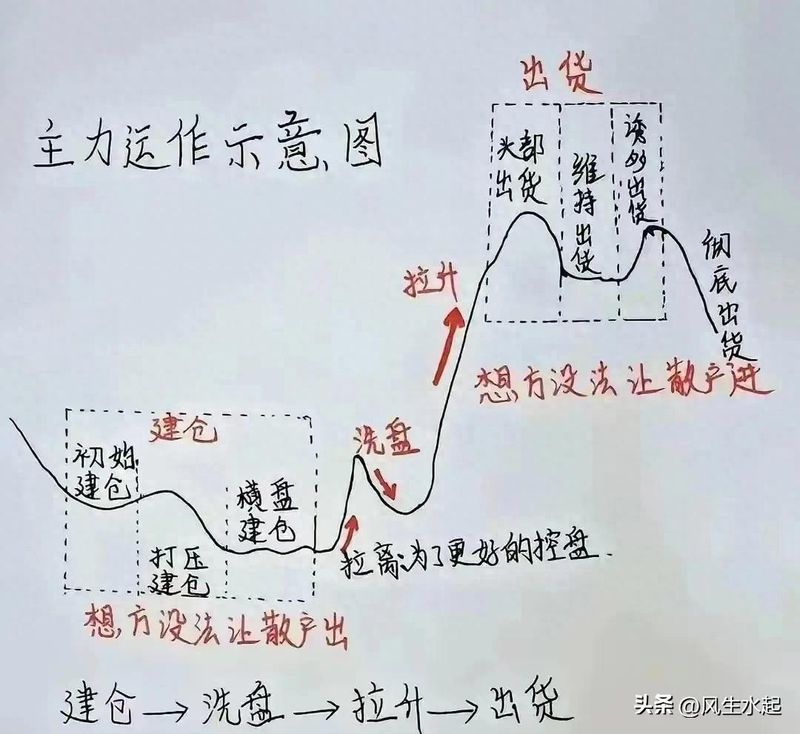 主力运作示意图
出货
头部出货
维持出货
诱多出货
彻底出货
拉升
想方设法让散户进
建仓
初始建仓
打压建仓
横盘建仓
洗盘
拉离:为了更好的控盘.
想方设法让散户出
建仓→洗盘→拉升→出货
头条 @风生水起